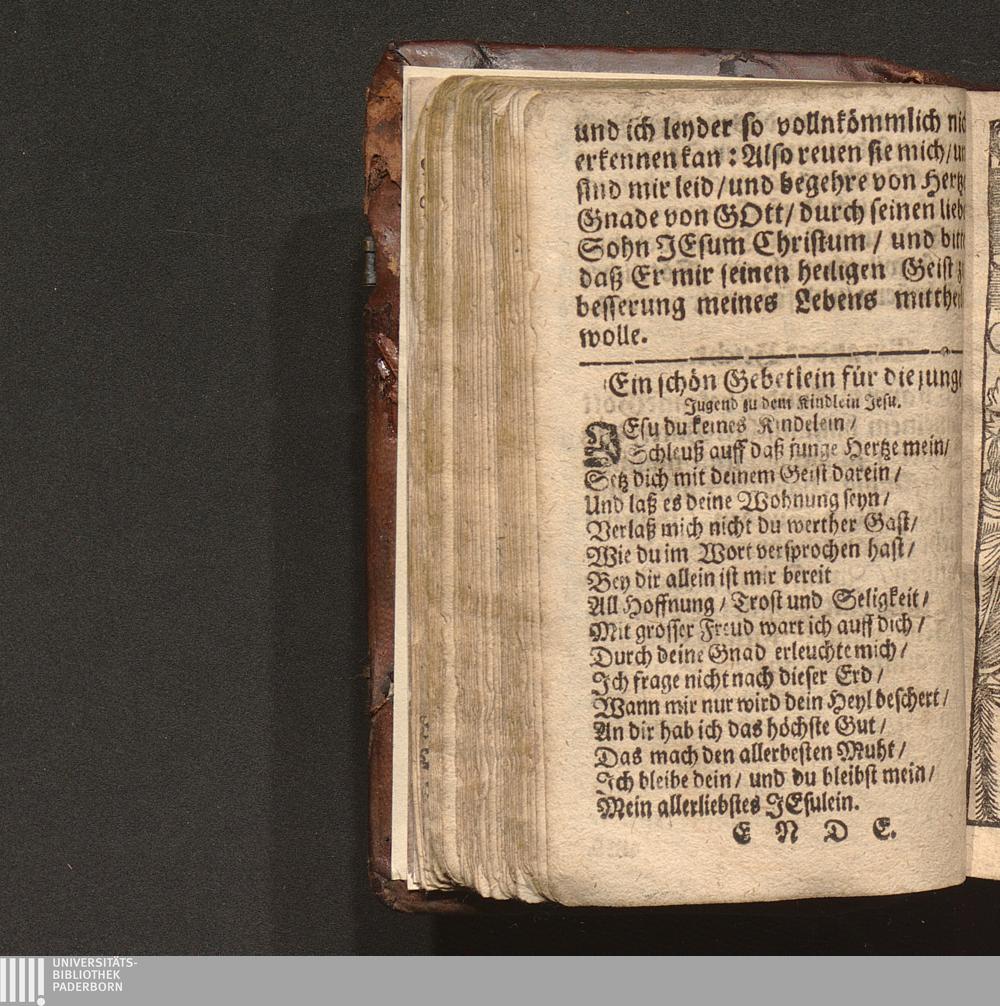 und ich leyder so vollnkömmlich
erkennen kan : Also reuen sie mich/
sind mir leid / und begehre von
Gnade von GOtt/ durch seinen
Sohn JEsum Christum / und
daß Er mir seinen heiligen Geist
besserung meines Lebens
wolle.
Ein schön Gebetlein für die
Jugend zu dem Kindlein Jesu.
JEsu du keines Kindelein /
Schleuß auff daß junge Hertze mein/
Setz dich mit deinem Geist darein /
Und laß es deine Wohnung seyn /
Verlaß mich nicht du werther Gast/
Wie du im Wort versprochen hast/
Bey dir allein ist mir bereit
All Hoffnung / Trost und Seligkeit /
Mit grosser Freud wart ich auff dich /
Durch deine Gnad erleuchte mich /
Ich frage nicht nach dieser Erd /
Wann mir nur wird dein Heyl beschert /
An dir hab ich das höchste Gut /
Das mach den allerbesten Muht /
Ich bleibe dein / und du bleibst mein /
Mein allerliebstes JEsulein.
E N D E.
UNIVERSITÄTS-
BIBLIOTHEK
PADERBORN